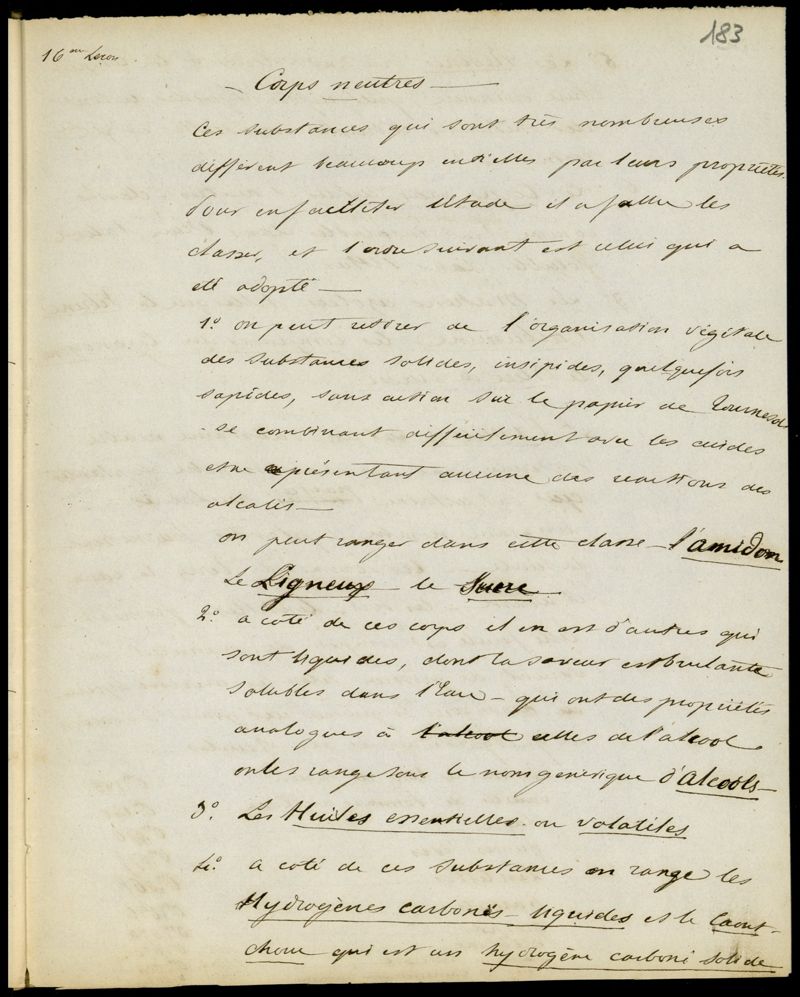 183
16me Leçon
— Corps neutres —
Ces substances qui sont très nombreuses
diffèrent beaucoup entr'elles par leurs propriétés.
Pour en faciliter l'étude il a fallu les
classer, et l'ordre suivant est celui qui a
été adopté —
1.o on peut retirer de l'organisation végétale
des substances solides, insipides, quelquefois
sapides, sans action sur le papier de Tournesol
- se combinant difficilement avec les acides
et ne présentant aucune des réactions des
alcalis —
on peut ranger dans cette classe — l'amidon
Le Ligneux le Sucre
2.o a coté de ces corps il en est d'autres qui
sont liquides, dont la saveur est brulante
solubles dans l'Eau — qui ont des propriétés
analogues à l'alcool celles de l'alcool.
on les range sous le nom générique d'Alcools —
3.o Les Huiles essentielles ou volatiles
4.o a coté de ces substances on range les
Hydrogènes carbonés - liquides et le Caout-
chouc qui est un hydrogène carboné solide